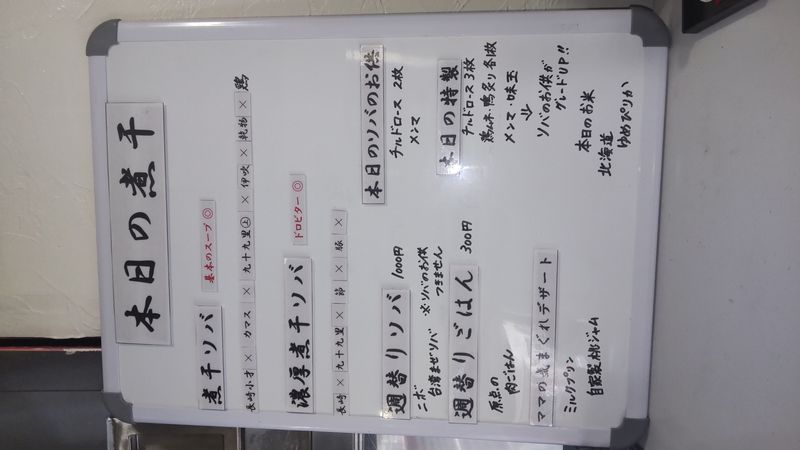 本日の煮干
煮干ソバ
基本のスープ◎
長崎小才×カマス×九十九里㊤×伊吹×乾物×鶏
濃厚煮干ソバ
ドロビター◎
長崎×九十九里×節×豚×
週替りソバ 1000円
ニボ台湾まぜソバ
※ソバのお供つきません
週替りごはん 300円
原点の
肉ごはん
ママの気まぐれデザート
ミルクプリン
自家製桃ジャム
本日のソバのお供
チルドロース 2枚
メンマ
本日の特製
チルドロース 3枚
鶏ムネ・鴨炙り各1枚
メンマ・味玉
↓
ソバのお供が
グレードUP!!
本日のお米
北海道
ゆめぴりか